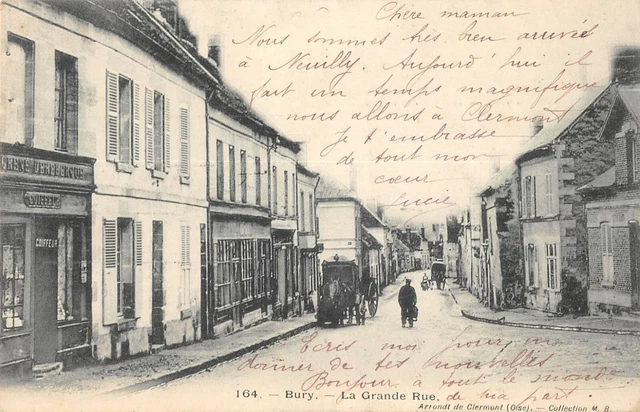 Chère maman
Nous sommes très bien arrivée
à Neuilly. Aujourd'hui il
fait un temps magnifique
nous allons à Clermont
Je t'embrasse
de tout mon
cœur
Lucie
COIFFEUR
COIFFEUR
Écris moi pour me
donner de tes nouvelles
Bonjour à tout le monde
de ma part.
164. - Bury. - La Grande Rue.
Arrondt de Clermont (Oise). - Collection M. B.